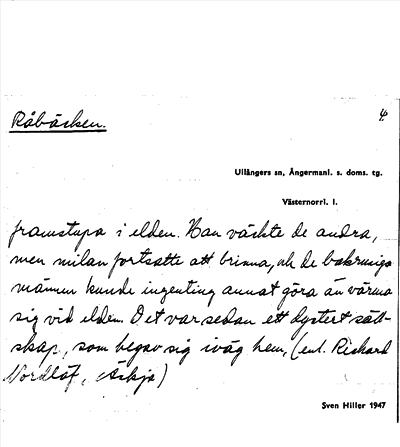 Råbäcken.
4
Ullångers sn, Ångermanl. s. doms. tg.
Västernorrl. l.
framstupa i elden. Han väckte de andra,
men milan fortsatte att brinna, och de bakrusiga
männen kunde ingenting annat göra än värma
sig vid elden. Det var sedan ett dystert säll-
skap, som begav sig iväg hem, (enl. Rickard
Nordlöf, Äskja)
Sven Hiller 1947